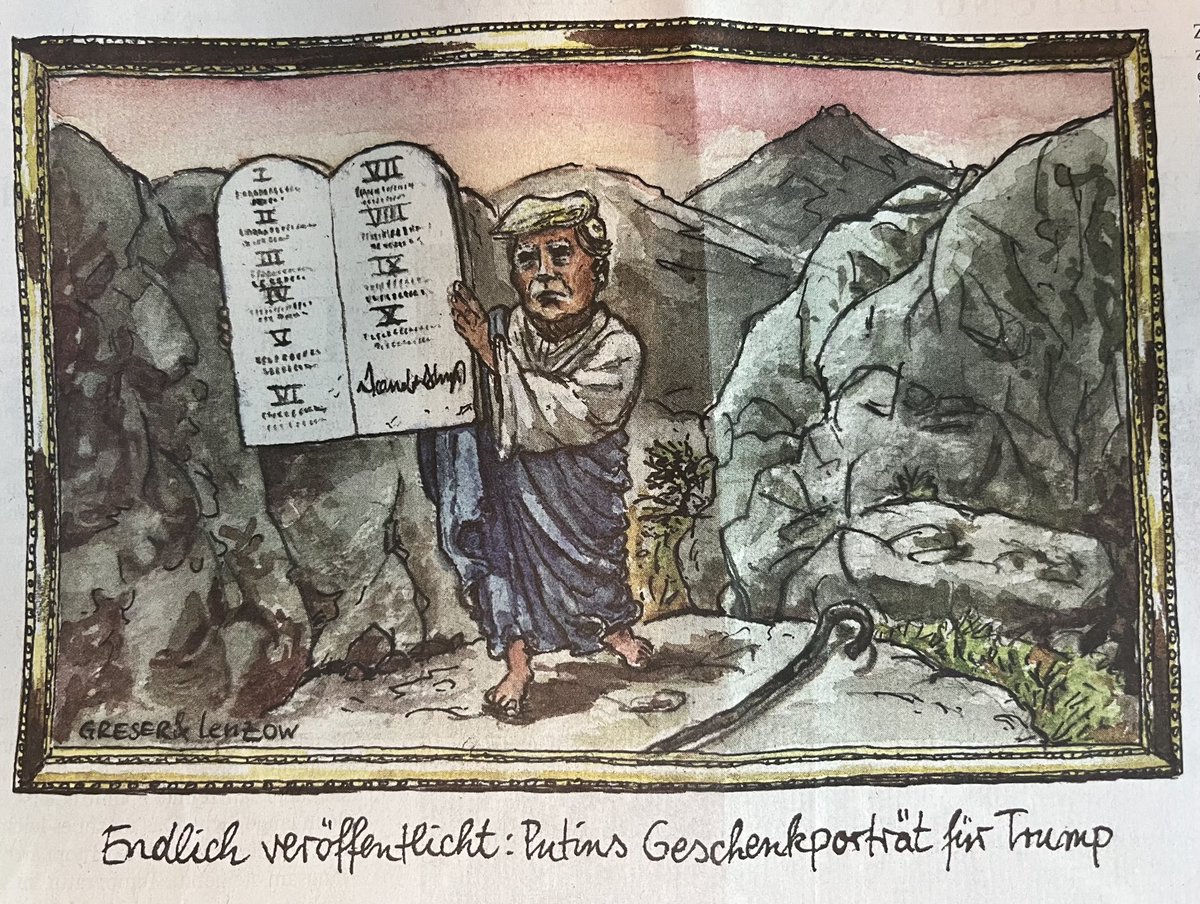 I
II
III
IV
V
VI
VII
VIII
IX
X
GRESER & LENZ OW
Endlich veröffentlicht: Putins Geschenkporträt für Trump